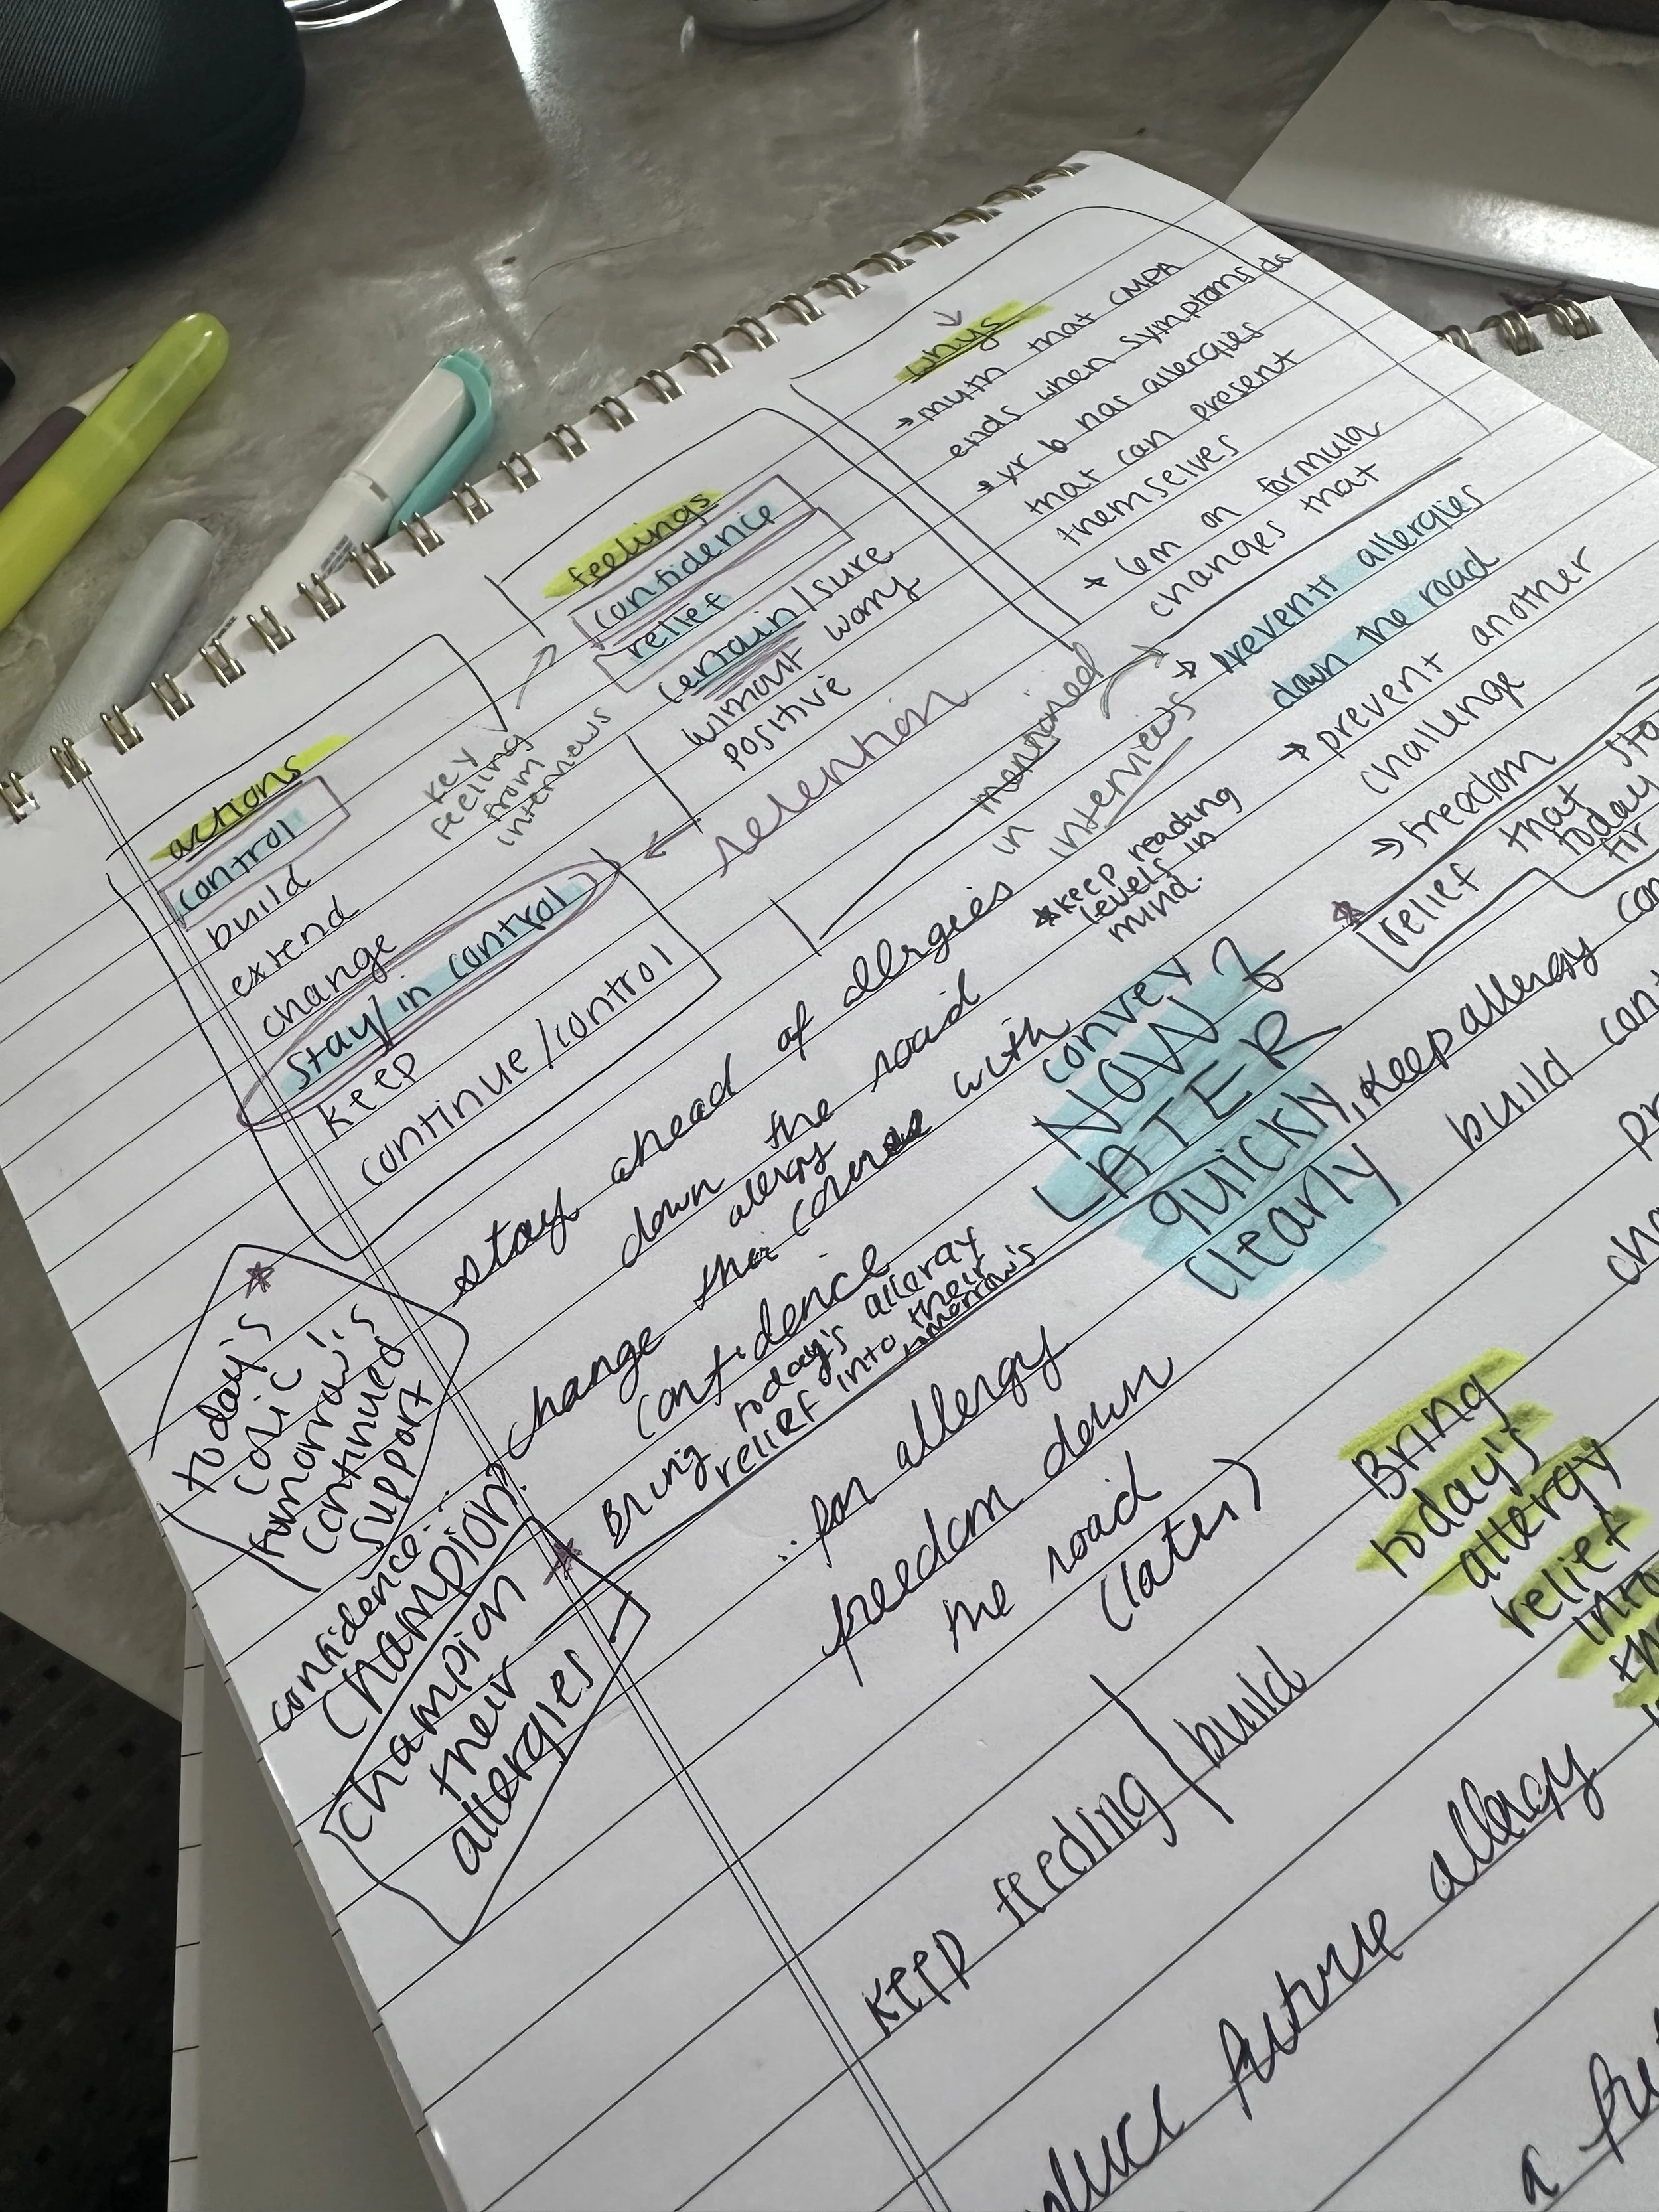 whys
→ myth that CMPA
ends when symptoms do
→ yr b has allergies
that can present
themselves
+ 6m on formula
changes that
→ prevents allergies
down the road
→ prevent another
challenge
→ freedom
relief that
today
feelings
confidence
relief
certain/sure
without worry
positive
key
feeling
from
interviews
retention
mentioned
in
interviews
actions
control
build
extend
change
stay/in control
keep
continue/control
*keep reading
levels in
mind.
convey
NOW &
LATER
quickly,
clearly
keep allergy
build
stay ahead of allergies
down the road
allergy
change the course with
confidence
Bring today's allergy
relief into their
today's
colic is
tomorrow's
continued
support
confidence...
Champion?
champion
their
allergies
..for allergy
freedom down
the road
(later)
Bring
today's
allergy
relief
into
keep feeding/build
future allergy
a